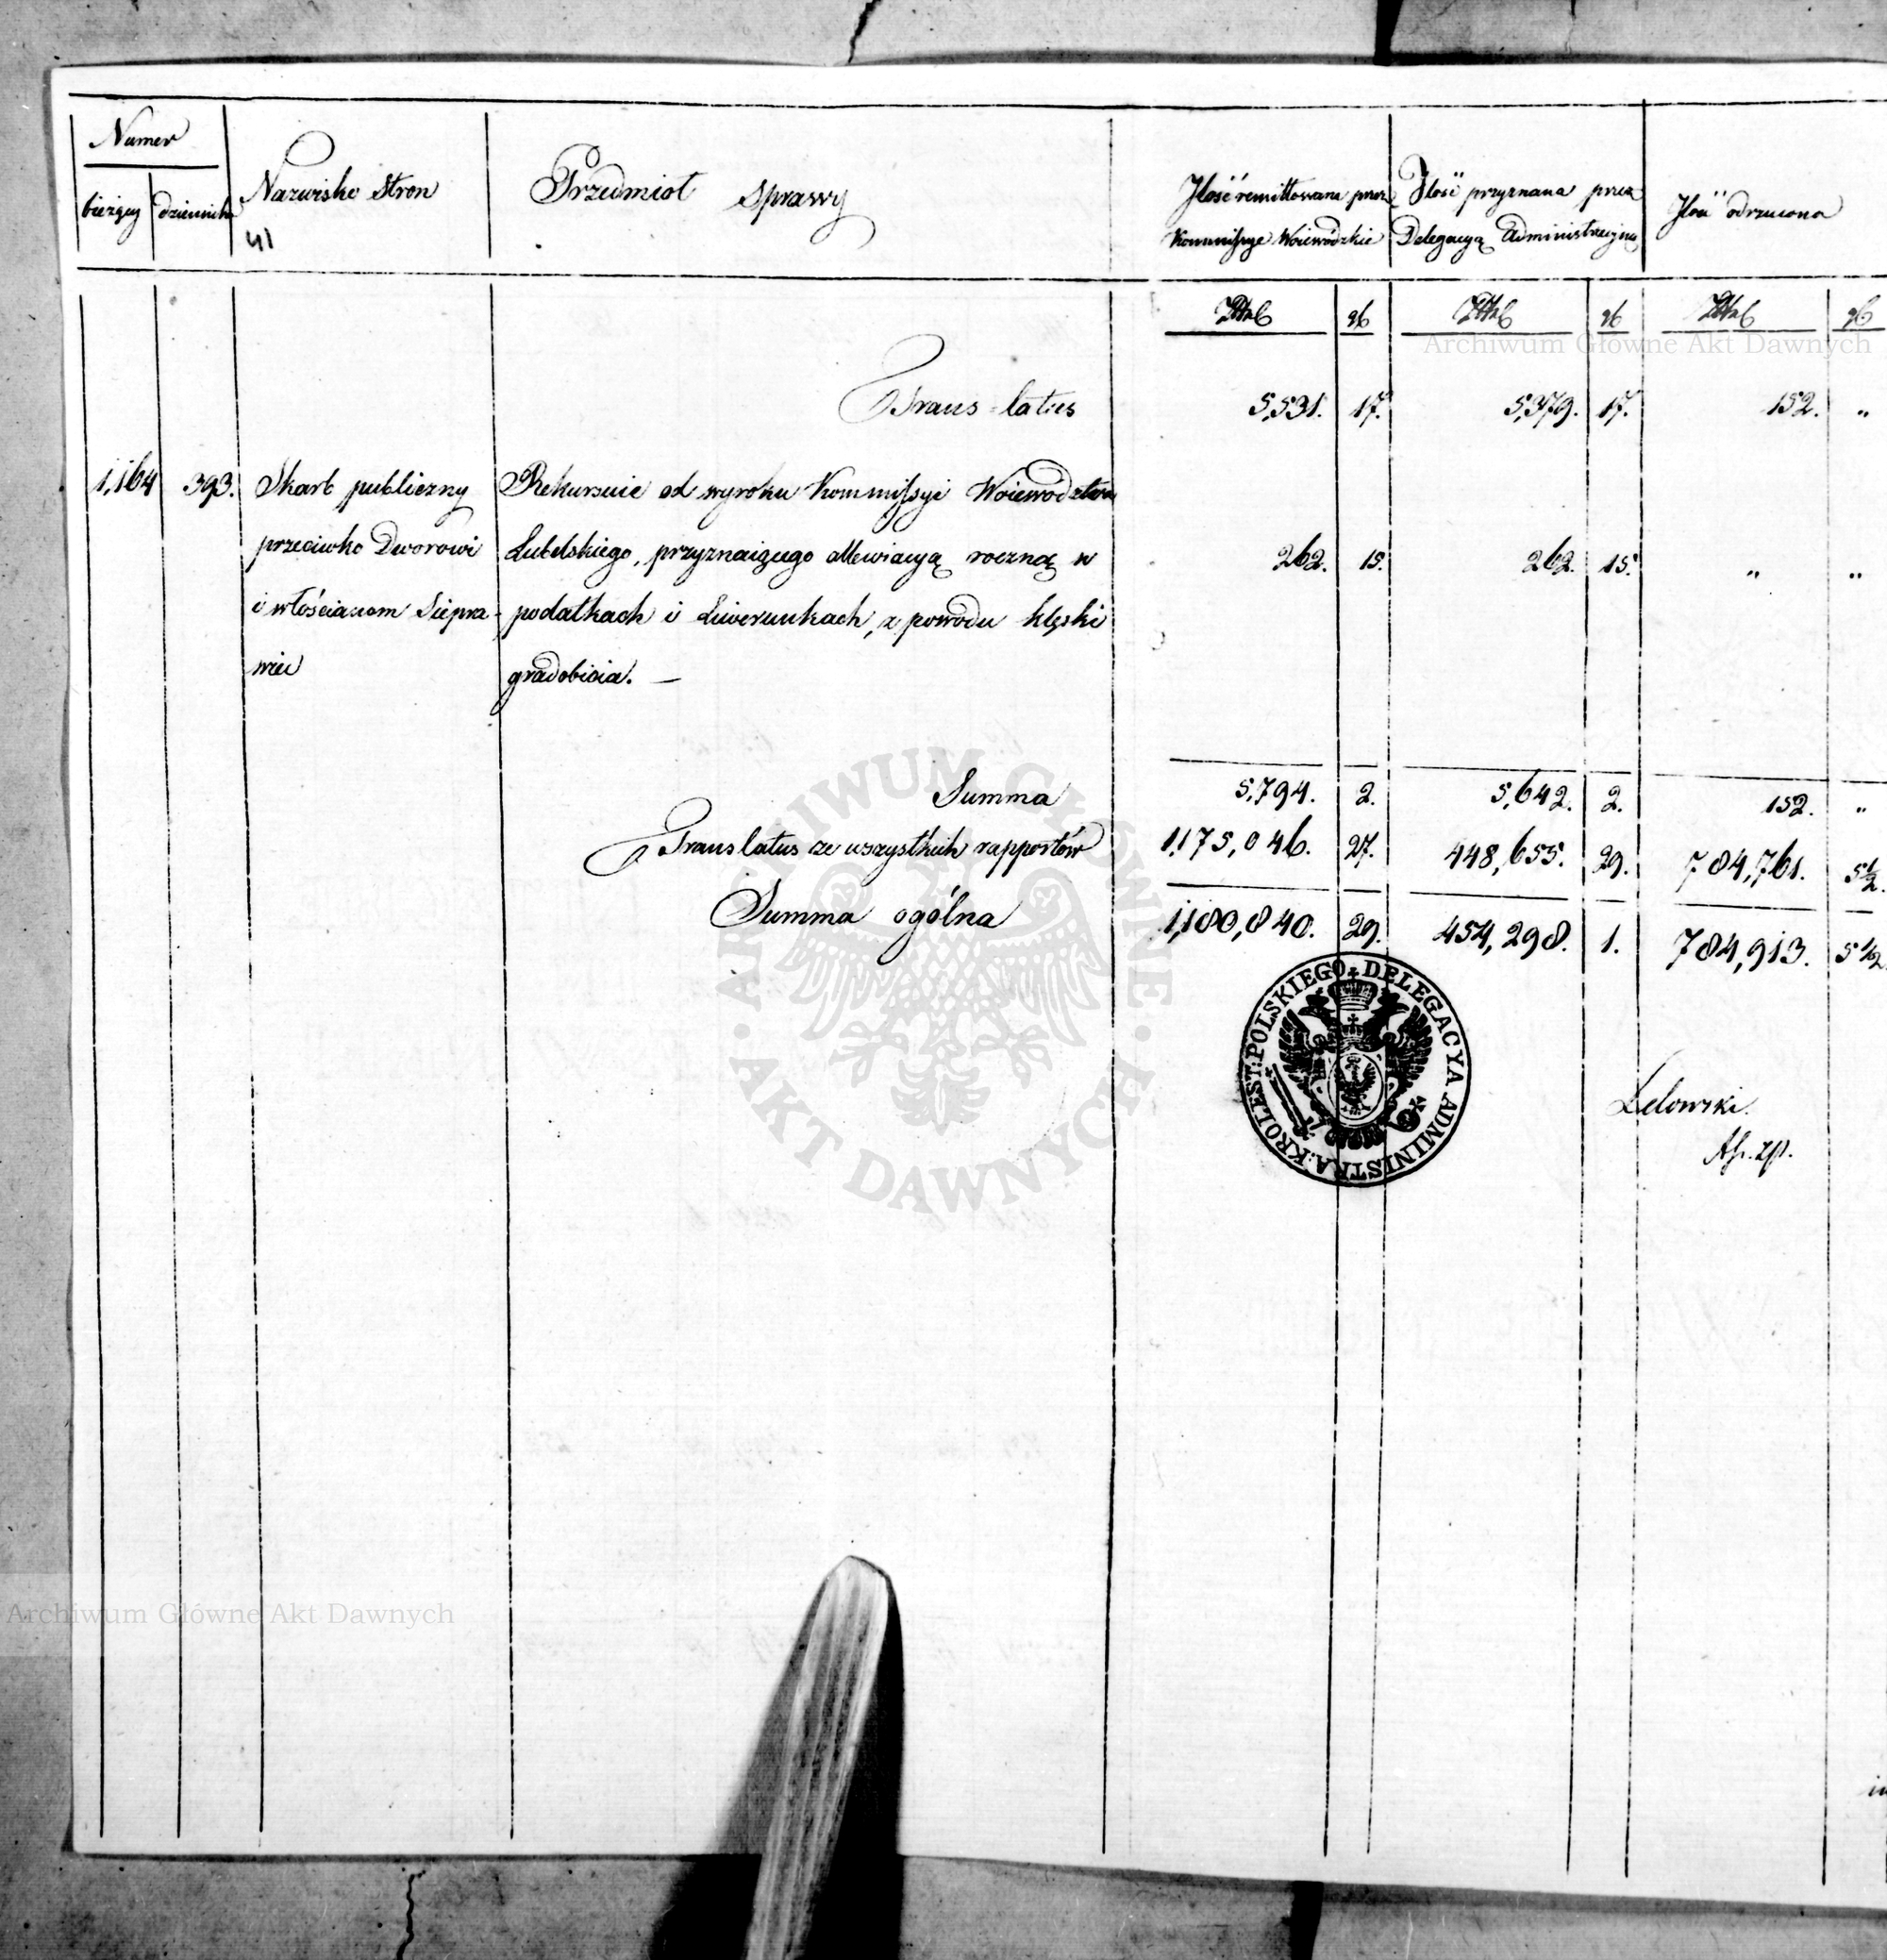 Numer
bieżący dziennika
Nazwisko Stron
41
Przedmiot sprawy
Ilość remittowana przez
Kommissye Woiewódzkie
Ilość przyznana przez
Delegacyą Administracyjną
Ilość odrzucona
Złotych gr Złotych gr Złotych gr
Archiwum Główne Akt Dawnych
Trans-latus 5,531. 17. 5,379. 17. 152. "
1,164 393. Skarb publiczny Rekursuie od wyroku Kommissyi Woiewództwa
przeciwko Dworowi Lubelskiego, przyznaiącego allewiacyą roczną w 262. 15. 262. 15. " "
i włościanom Siepra- podatkach i Liwerunkach, z powodu klęski
wiec gradobicia. —
Summa 5,794. 2. 5,642. 2. 152. "
Translatus ze wszystkich rapportów 1,175,046. 27. 448,655. 29. 784,761. 5½.
Summa ogólna 1,180,840. 29. 454,298. 1. 784,913. 5½
ARCHIWUM GŁÓWNE · AKT DAWNYCH ·
KROLEST: POLSKIEGO DELEGACYA ADMINISTRA:
Lelowski.
Archiwum Główne Akt Dawnych